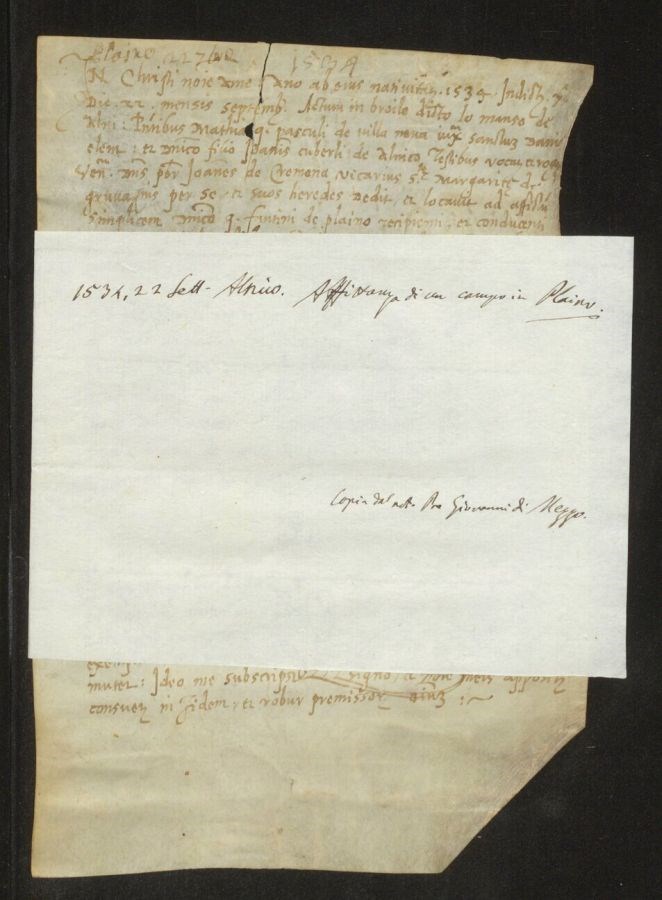 Plaino 22 7bre 1534
N Christi noie Ame Ano ab eius nativitate. 1534. Indict. 7
Die 22. mensis septemb. Actum in broilo ditto lo manso de
Alni: Pñtibus Mathia q. pasculi de villa nova iux sanctuz Dani
elem: et Dnico filio Joanis cuberli: de Alnico Testibus vocat. rog
Ven. Dns pbr Joanes de Cremona vicarius S. Margarite de
gruagnis per se et suos heredes Dedit, et locavit ad affictu
Simplicem Dnico q. fintini de plaino recipienti, et conducenti
1534, 22 Sett- Alnico. Affittanza di un campo in Plaino.
Copia dal not. Pre Giovanni di Mezzo.
muter: Ideo me subscripsi signo, et noie meis apponi
consuet. in Fidem, et robur premissor.